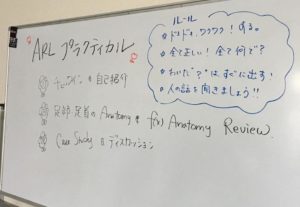 ARL プラクティカル
チェックイン & 自己紹介
足部 足首の Anatomy & f(x) Anatomy Review.
Case Study & ディスカッション
ルール
ドキドキ、ワクワク! ある。
全て正しい! 全て何で?
"?" はすぐに出す!
人の話を聞きましょう!!